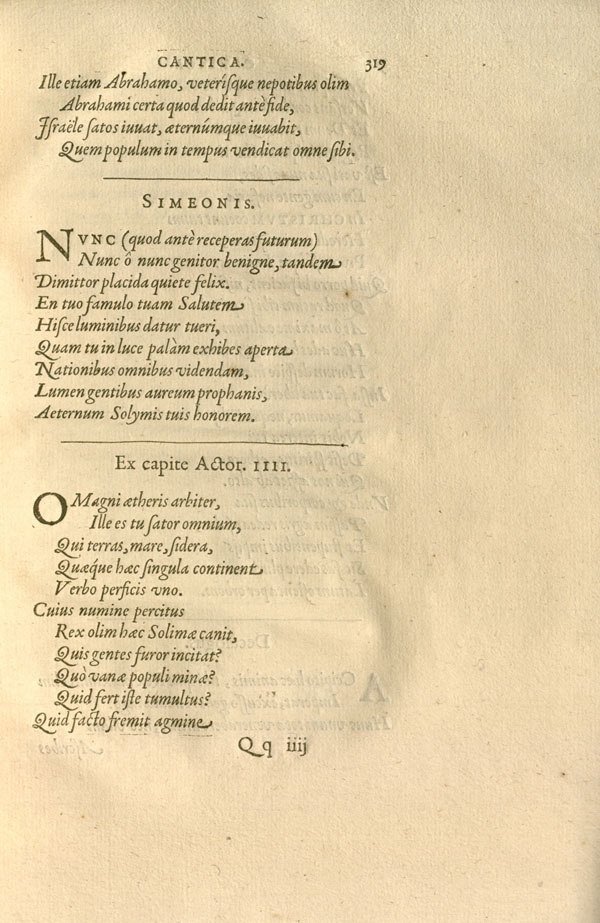 CANTICA. 319
Ille etiam Abrahamo, veterisque nepotibus olim
Abrahami certa quod dedit antè fide,
Israële satos iuuat, æternúmque iuuabit,
Quem populum in tempus vendicat omne sibi.
SIMEONIS.
NVNC (quod antè receperas futurum)
Nunc ô nunc genitor benigne, tandem
Dimittor placida quiete felix.
En tuo famulo tuam Salutem
Hisce luminibus datur tueri,
Quam tu in luce palàm exhibes aperta
Nationibus omnibus videndam,
Lumen gentibus aureum prophanis,
Aeternum Solymis tuis honorem.
Ex capite Actor. IIII.
O Magni ætheris arbiter,
Ille es tu sator omnium,
Qui terras, mare, sidera,
Quæque hæc singula continent
Verbo perficis vno.
Cuius numine percitus
Rex olim hæc Solimæ canit,
Quis gentes furor incitat?
Quò vanæ populi minæ?
Quid fert iste tumultus?
Quid facto fremit agmine
Qq iiij